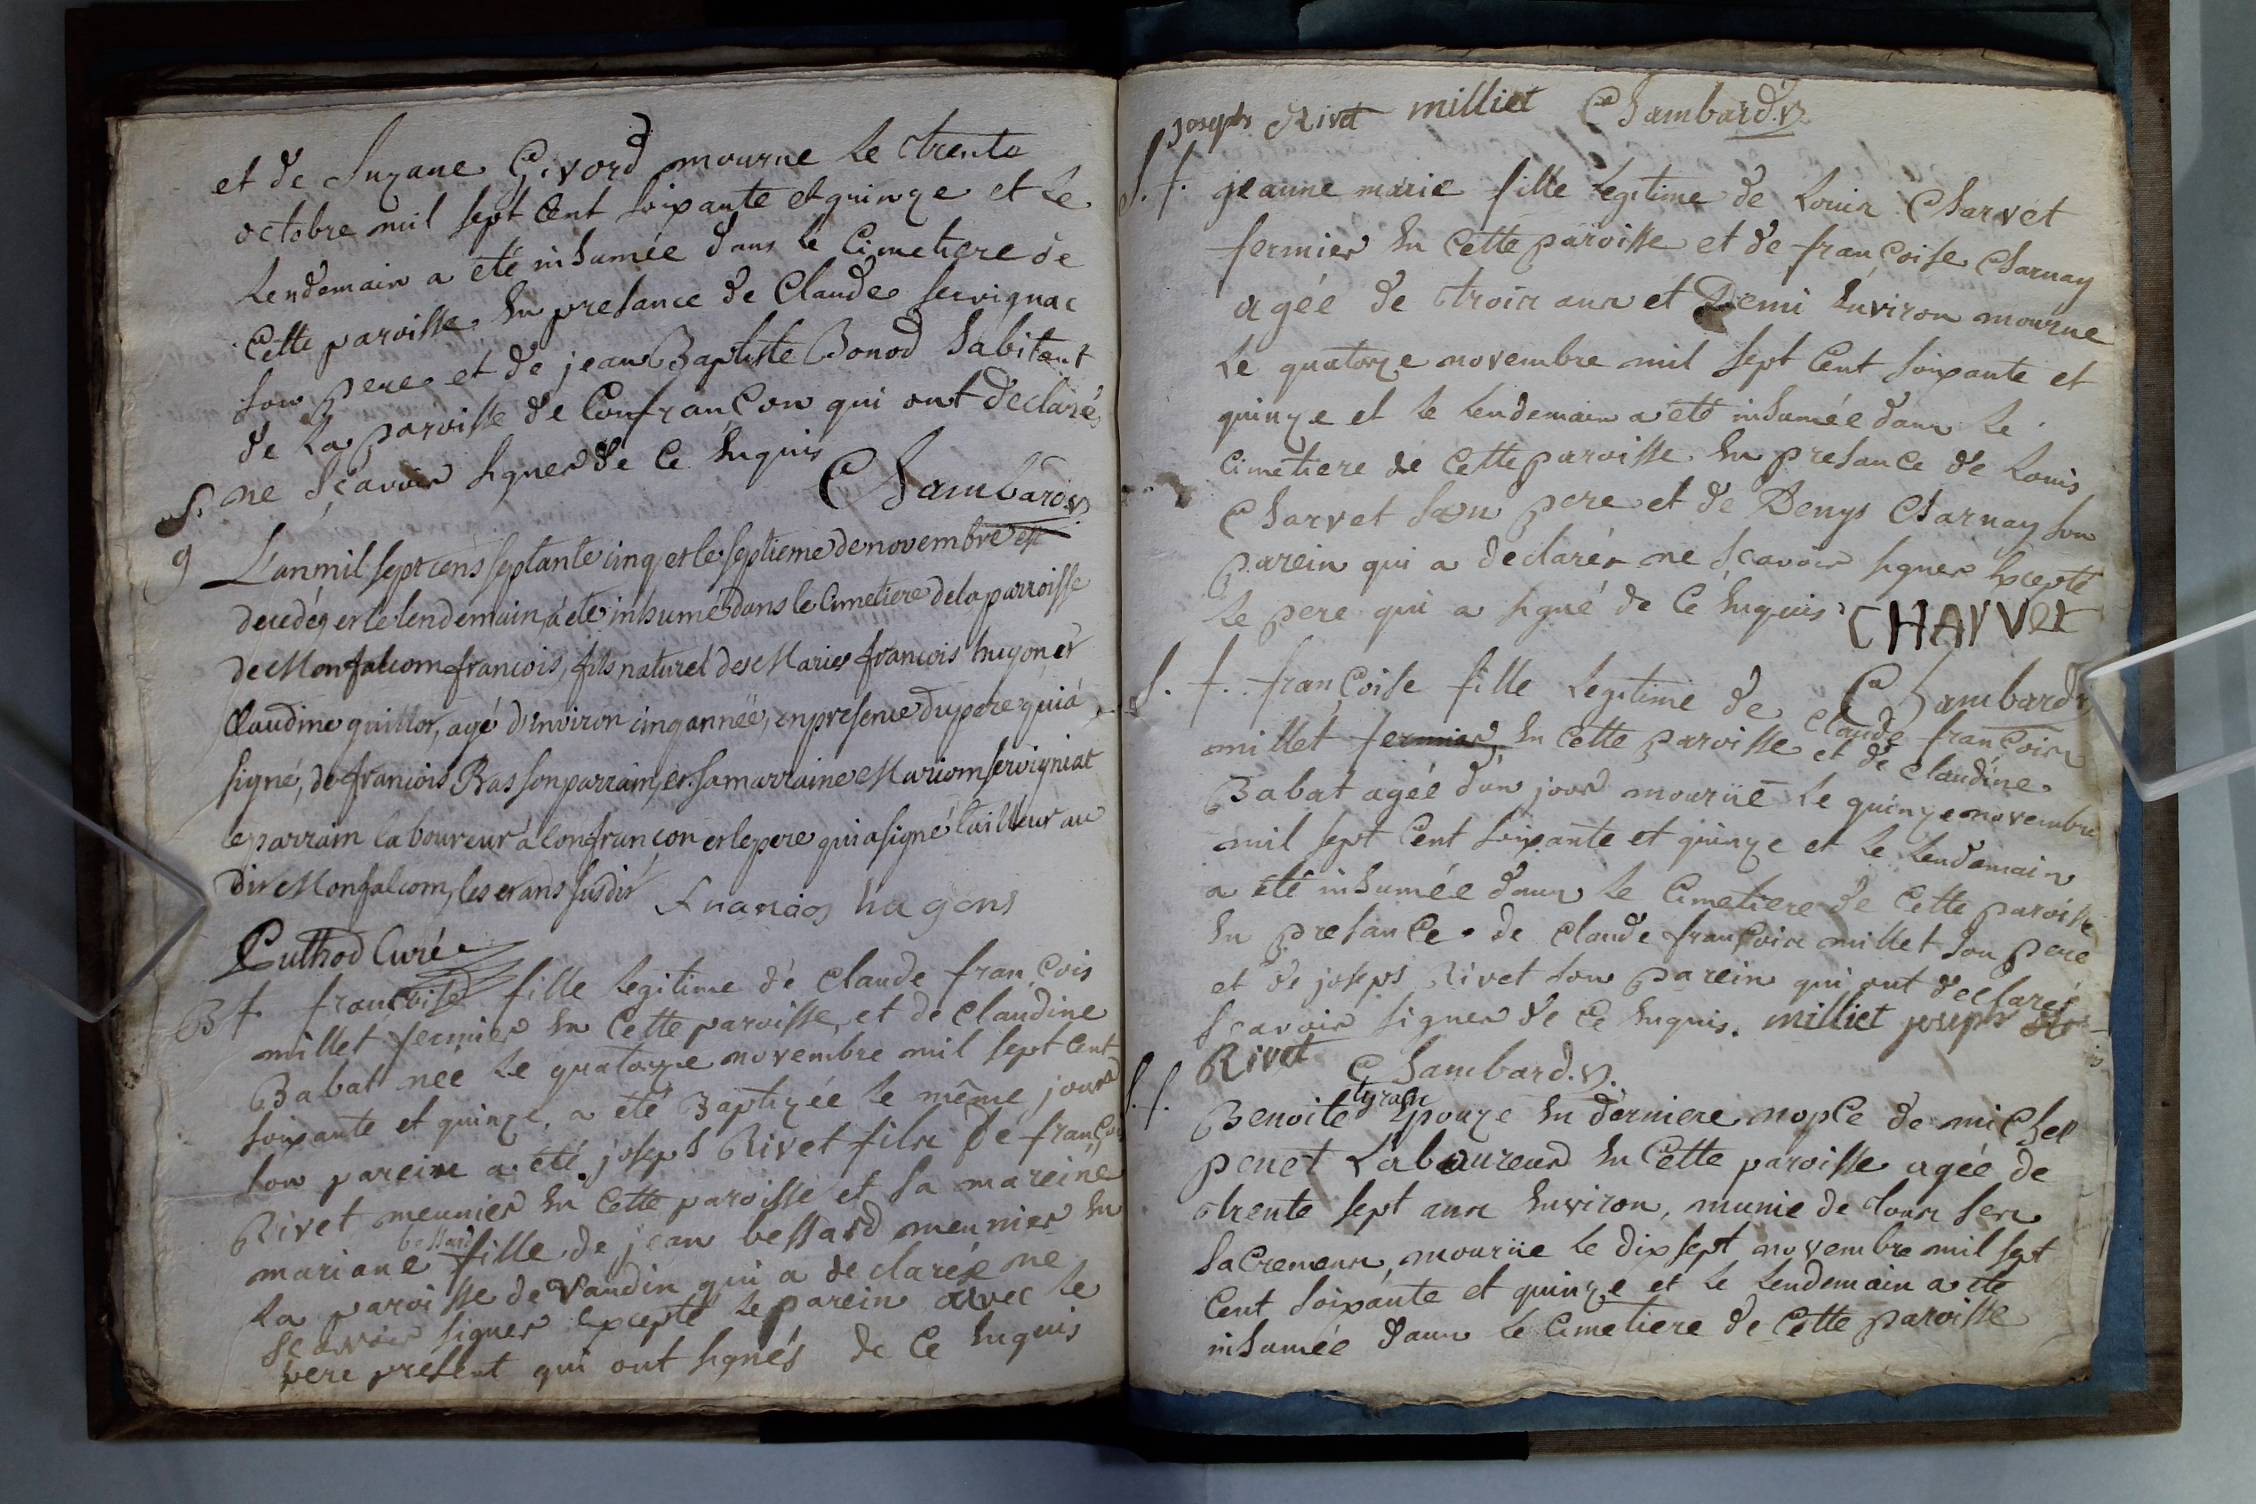 et de Suzane Givord mourue le trente
octobre mil sept cent soixante et quinze et le
lendemain a eté inhumée dans le cimetiere de
cette paroisse en presance de Claude servignac
son pere et de jean Baptiste Bonod habitant
de la paroisse de Confrançon qui ont declaré
ne sçavoir signer de ce enquis
Chambard.v.
S.
g L'an mil sept cens septante cinq et le septieme de novembre est
decedé, et le lendemain, a eté inhumé dans le Cimetiere de la parroisse
de Monfalcom francois, fils naturel des Maries francois hugon et
Claudine quillor, agé d'environ cinq année, en presence du pere qui a
signé, de francois Bas son parrain, et sa marraine Mariom servigniat
le parrain laboureur a Confrançon et le pere qui a signé tailleur au
dit Monfalcom, les et ans susdit francios hugons
Cuthod Curé
B f. françoise fille legitime de claude françois
millet fermier en cette paroisse, et de claudine
Babat née le quatorze novembre mil sept cent
soixante et quinze, a eté Baptizée le même jour
son parein a eté joseph Rivet fils de françois
Rivet meunier en cette paroisse et sa mareine
bessard
mariane fille de jean bessard meunier en
la paroisse de Vandin qui a declarée ne
scavoir signer excepté le parein avec le
pere present qui ont signés de ce enquis
joseph Rivet milliet Chambard.v.
S. f. jeanne marie fille legitime de Louis Charvet
fermier en cette paroisse et de françoise Charnay
agée de trois ans et Demi environ mourue
le quatorze novembre mil sept cent soixante et
quinze et le lendemain a eté inhumée dans le
cimetiere de cette paroisse en presance de Louis
Charvet son pere et de Denys Charnay son
parein qui a declarés ne sçavoir signer excepté
le pere qui a signé de ce enquis CHARVET
Chambard v.
S. f. françoise fille legitime de claude françois
millet fermier en cette paroisse et de claudine
Babat agée d'un jour mourüe le quinze novembre
mil sept cent soixante et quinze et le lendemain
a eté inhumée dans le cimetiere de cette paroisse
en presance de claude françois millet son pere
et de joseph Rivet son parein qui ont declarés
scavoir signer de ce enquis. milliet joseph
Rivet Chambard.v.
S. f. Benoite tyran Epouze en derniere nopce de michel
penet Laboureur en cette paroisse agée de
trente sept ans environ, munie de tous ses
sacremens, mourüe le dix sept novembre mil sept
cent soixante et quinze et le lendemain a eté
inhumée dans le cimetiere de cette paroisse